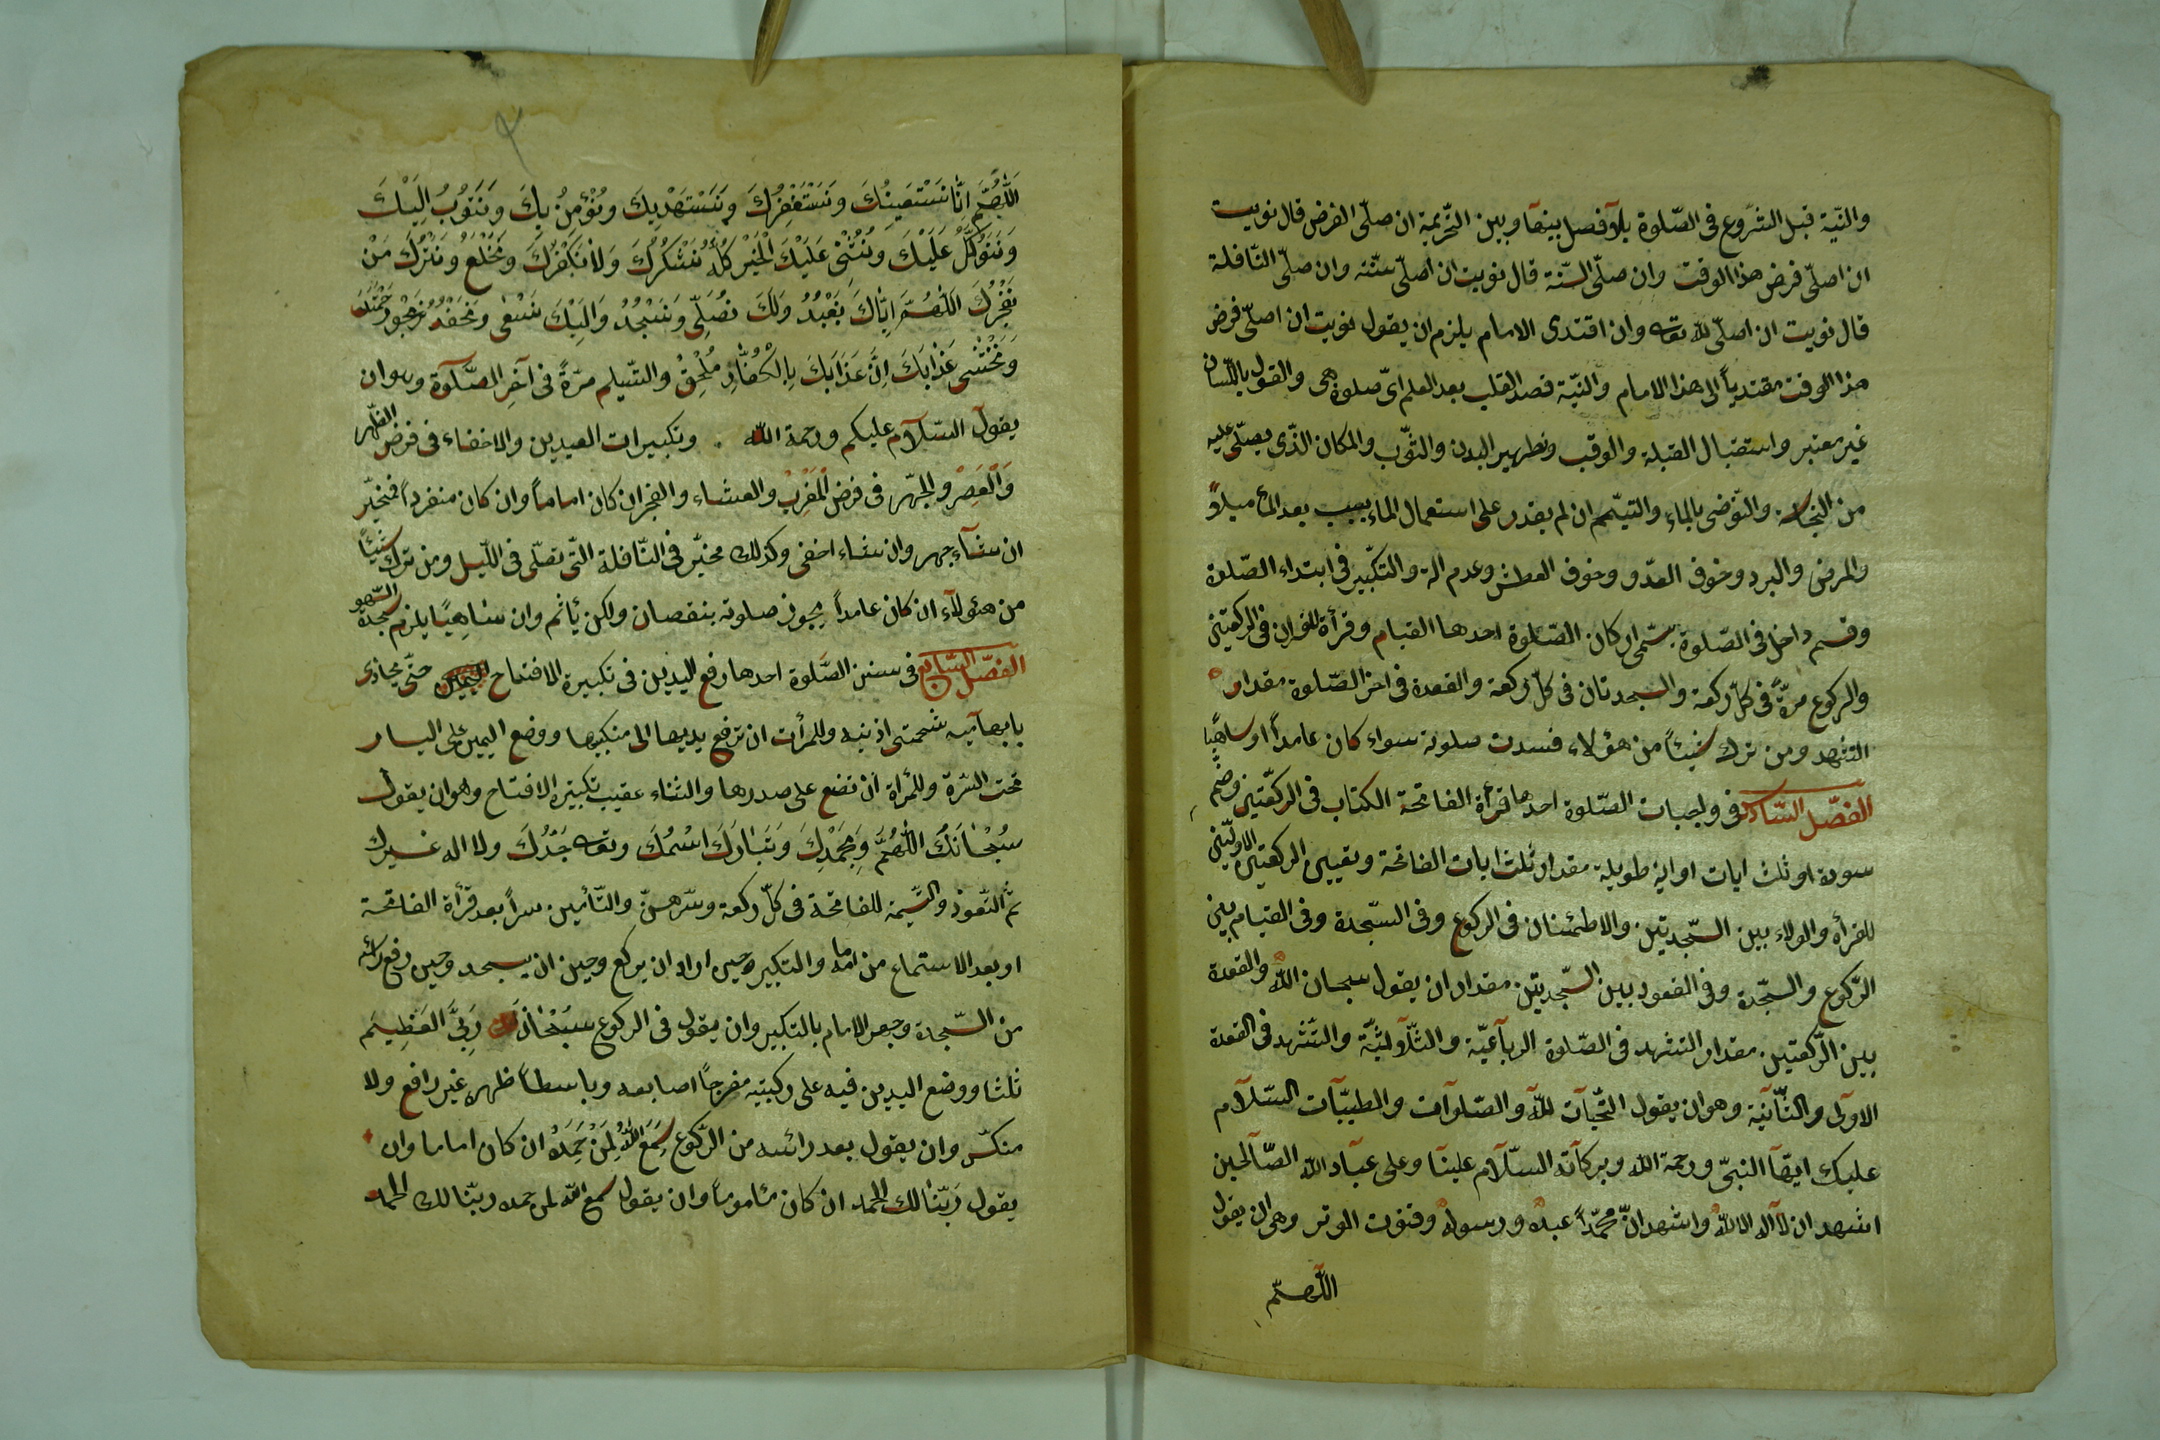 والنّية قبل الشروع فى الصّلوة بلا فصل بينها وبين التّحريمة ان صلّى الفرض قال نويت
ان اصلّى فرض هذا الوقت وان صلّى السنّة قال نويت ان اصلّى سنّة وان صلّى النّافلة
قال نويت ان اصلّى لله تعه وان اقتدى الامام يلزم ان يقول نويت ان اصلّى فرض
هذا الوقت مقتدياً الى هذا الامام والنّية قصد القلب بعد العلم اىّ صلوة هى والقول باللّسان
غير معتبر واستقبال القبلة والوقت وتطهير البدن والثّوب والمكان الذّى يصلّى عليه
من النجاسة والتّوضى بالماء والتيمّم ان لم يقدر على استعمال الماء بسبب بعد الماء ميلاً
والمرض والبرد وخوف العدو وخوف العطش وعدم الة والتكّبير فى ابتداء الصّلوة
وقسم داخل فى الصّلوة يسّمى اركان الصّلوة احدها القيام وقرأة القران فى الركعتين
والركوع مرّة فى كلّ ركعة والسجدتان فى كلّ ركعة والقعدة فى اخر الصّلوة مقدار
التشهد ومن ترك شيئاً من هؤلاء فسدت صلوته سواء كان عامداً او ساهياً
الفصّل السّادس فى واجبات الصّلوة احدها قرأة الفاتحة الكتاب فى الركّعتين وضم
سورة او ثلث ايات او اية طويلة مقدار ثلث ايات الفاتحة وتعيين الركعتين الاوليّين
للقرأة والولاء بين السّجدتين والاطمئنان فى الركوع وفى السّجدة وفى القيام بين
الرّكوع والسّجّدة وفى القعود بين السّجديتن مقدار ان يقول سبحان الله والقعدة
بين الرّكعتين مقدار التشهد فى الصّلوة الرباعيّة والثّلاثيّة والتّشهد فى القعدة
الاولى والثّانية وهو ان يقول التّحيات لله والصّلوات والطيبّات السّلام
عليك ايّها النبىّ ورحمة الله وبركاته السّلام علينا وعلى عباد الله الصّالحين
اشهد ان لا اله الا الله واشهد انّ محمّداً عبده ورسوله وقنوت الوتر وهى ان يقول
اللّهمّ
اَللّٰهُمَّ اِنَّا نَسْتَعِينُكَ وَنَسْتَغْفِرُكَ وَنَسْتَهْدِيكَ وَنُؤْمِنُ بِكَ وَنَتُوبُ اِلَيْكَ
وَنَتَوَكَّلُ عَلَيْكَ وَنُثْنِى عَلَيْكَ الْخَيْرَ كُلَّهُ نَشْكُرُكَ وَلَا نَكْفُرُكَ وَنَخْلَعُ وَنَتْرُكَ مَنْ
يَفْجُرُكَ اَللّٰهُمَّ اِيَّاكَ نَعْبُدُ وَلَكَ نُصَلِّى وَنَسْجُدُ وَاِلَيْكَ نَسْعٰى وَنَحْفِدُ نَرْجُو رَحْمَتَكَ
وَنَخْشٰى عَذَابَكَ اِنَّ عَذَابَكَ بِالْكُفَّارِ مُلْحِقٌ والتسّيلم مرّةً فى آخِرِ الصَّلَوة وهو ان
يقول السّلام عليكم ورحمة اللّه وتكبيرات العيدين والاخفاء فى فرض الظّهر
وَالْعَصِرْ والجّهر فى فرض الْمَغْرِبْ والعشاء والفجر ان كان اماماً وان كان منفرداً فمخيّر
ان شآء جهر وان شاء اخفى وكذلك مخيّر فى النّافلة التّى تصلّى فى اللّيل ومن ترك شَيْئاً
من هئولآء ان كان عامداً يجوز صلوته بنقصان ولكن يأثم وان ساهِيًا يلزم سجدة السّهو
الفصّل السّابع فى سنن الصَّلوة احدها رفع اليدين فى تكبيرة الافتتاح حتّى يحاذى
بابهاميه شحمتى اذنيه وللمرأت ان ترفع يديها الى منكبيها ووضع اليمين على اليسار
تحت السّرة وللمراة ان تضع على صدرها والثناء عقيب تكبيرة الافتتاح وهو ان يقول
سُبْحَانَكَ اللّٰهُمَّ وَبِحَمْدِكَ وَتَبَارَكَ اسْمُكَ وتعه جَدُّكَ ولا اله غيرك
ثمّ التعّوذ والتّسمية للفاتحة فى كلّ ركعة وسّرهنّ والتّأمين سراً بعد قرأة الفاتحة
او بعد الاستماع من امامه والتكبير حين اراد ان يركع وحين ان يسجد وحين رفع رأسه
من السّجدة وجهر الامام بالتكبير وان يقول فى الركوع سُبْحَانَ رَبِّىَ العَظِيم
ثلثا ووضع اليدين فيه على ركبتيه مفرجاً اصابعه وباسطاً ظهره غير رافع ولا
منكّس وان يقول بعد رائسه من الرّكوع سَمِعَ اللّٰهُ لِمَنْ حَمِدَهُ ان كان اماما وان
يقول رَبّنَا لك الحمد ان كان مئاموماً وان يقول سمع اللّه لمن حمده ربّنا لك الحمد